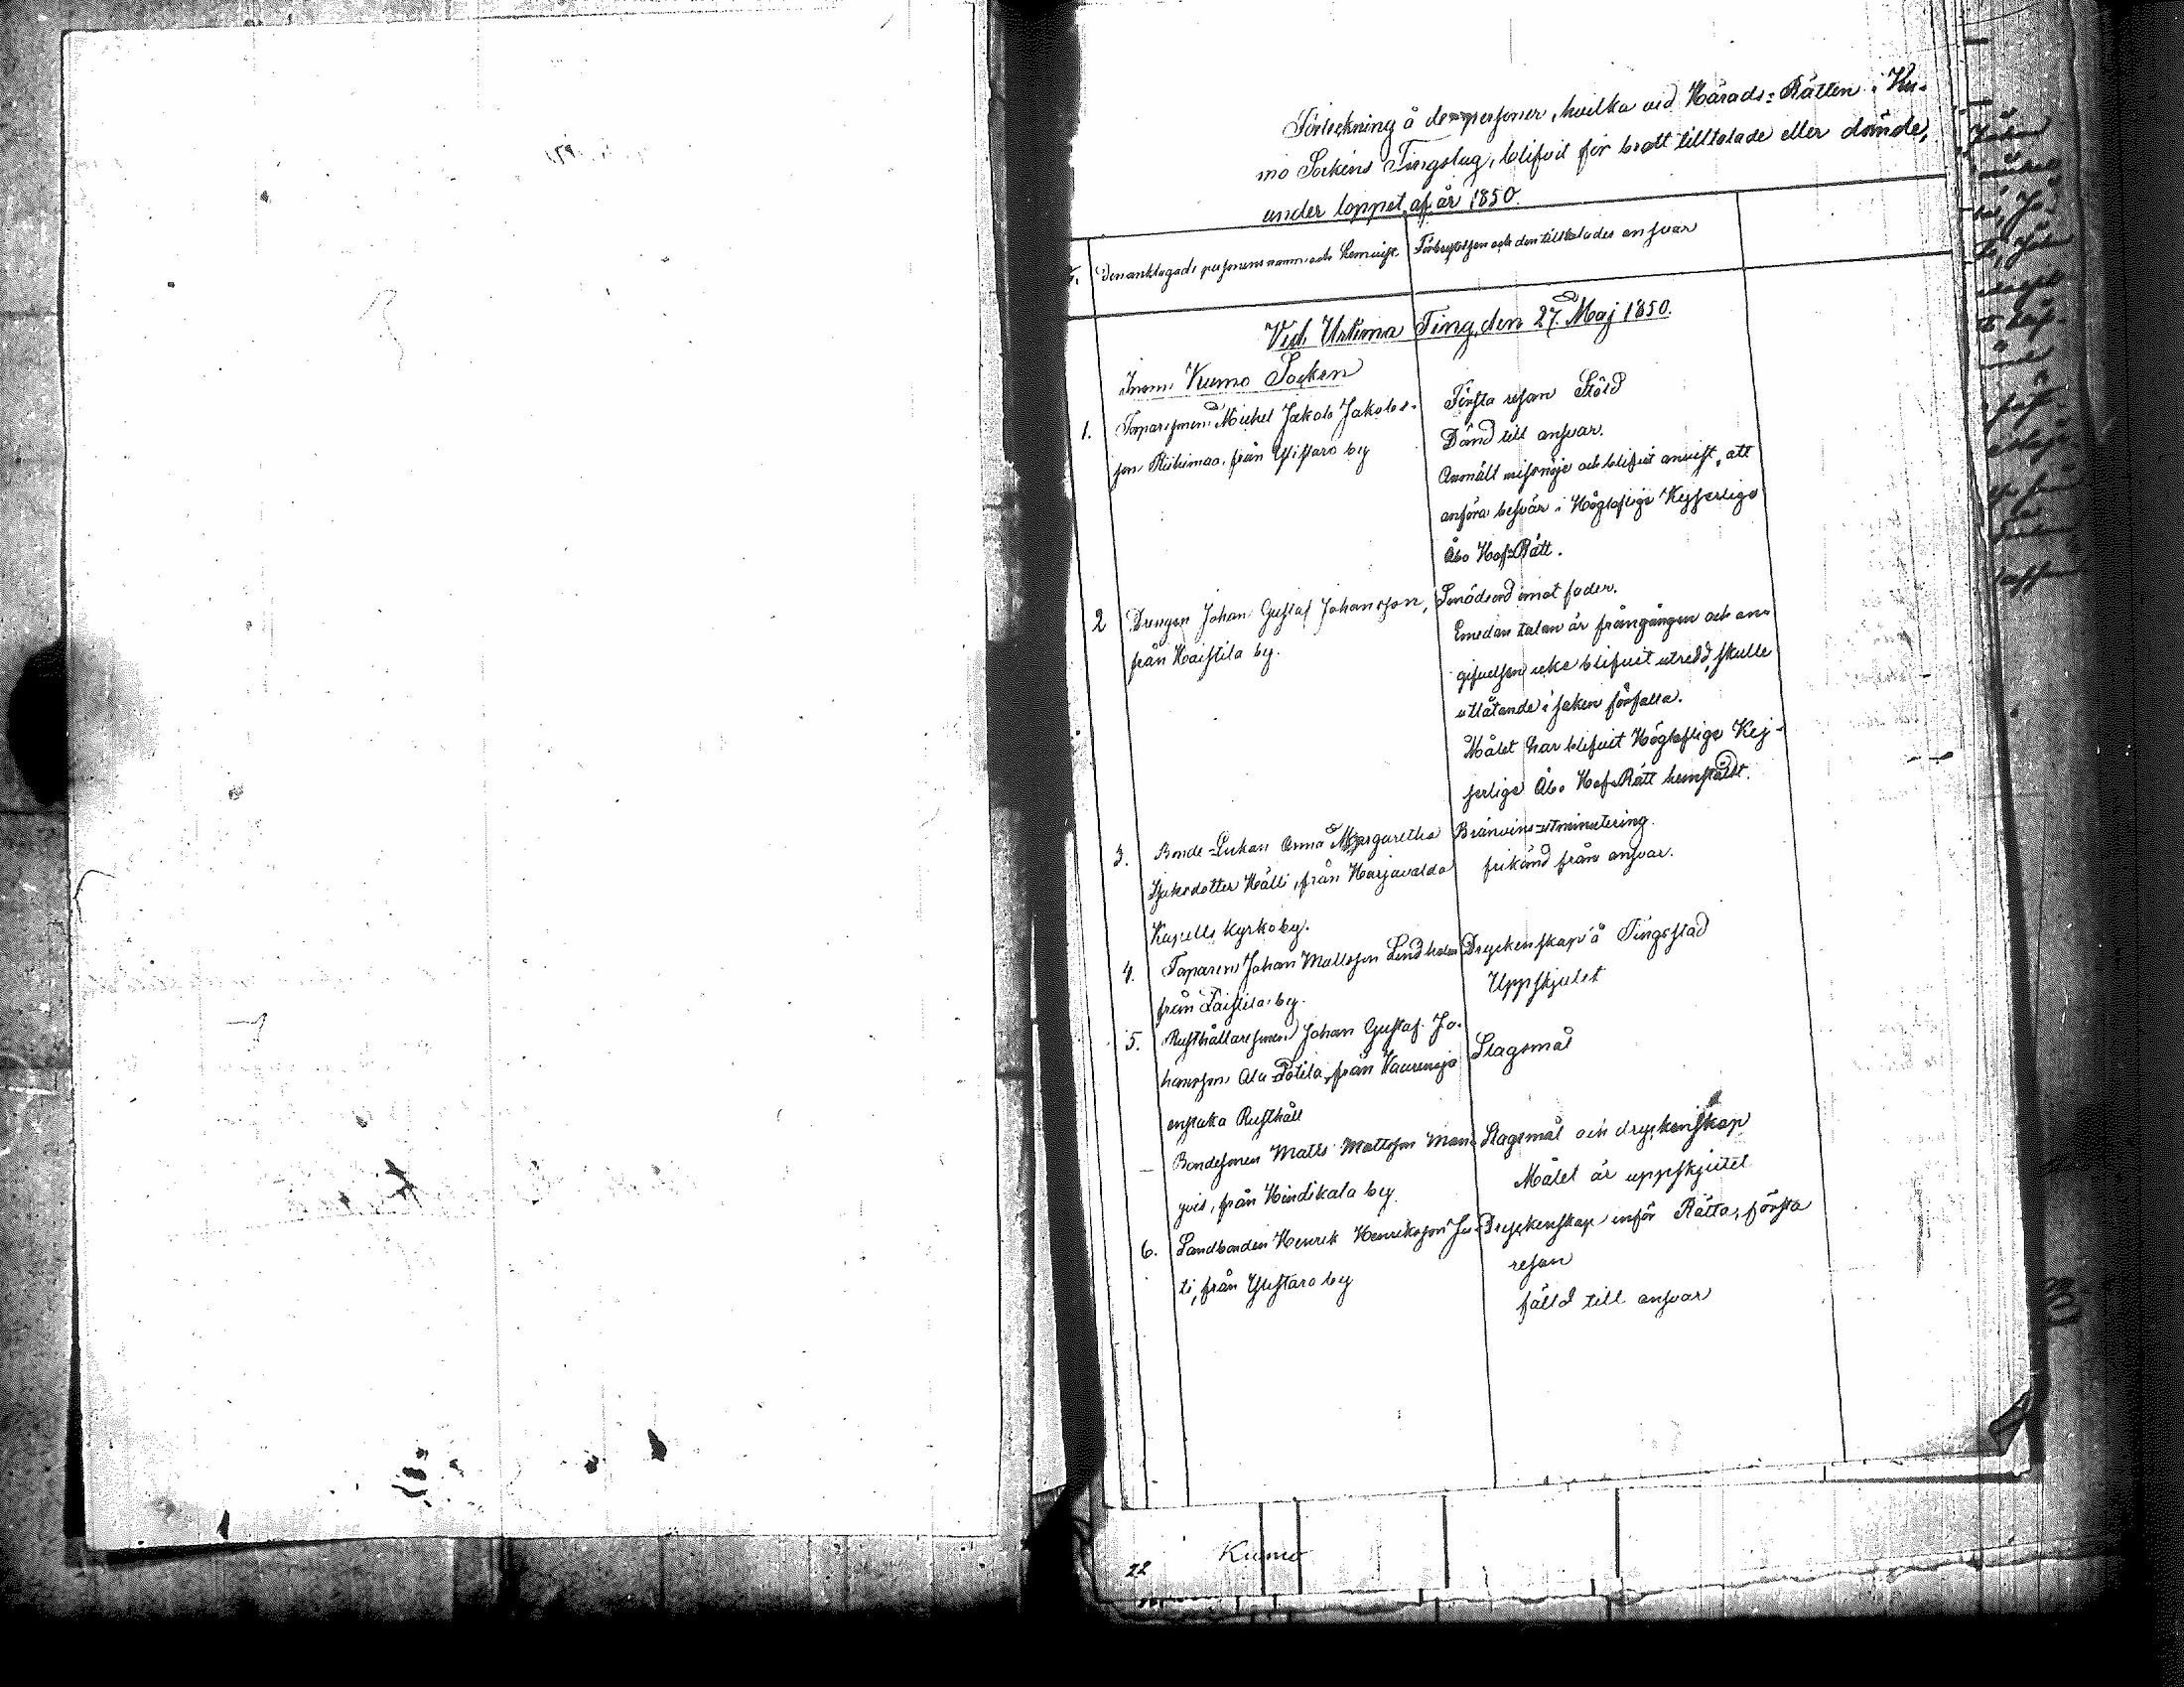 Förteckning å de personer, hvilka vid Härads=Rätten i Ku-
mo Sockens Tingslag, blifvit för brott tilltalade eller dömde,
under loppet af år 1850.
Den anklagade personens namn och hemvist.
Förbrytelsen och den tilltalades ansvar
Vid Urtima Ting, den 27 Maj 1850.
Inom Kumo Socken
1. Torparesonen Michel Jakob Jakobs-
son Riihimaa, från Ylistaro by
Första resan Stöld
Dömd till ansvar.
Anmält missnöje och blifvit anvist, att
anföra besvär i Höglofliga Kejserliga
Åbo Hof=Rätt.
2 Drengen Johan Gustaf Johansson,
från Haistila by.
Smädeord emot fader.
Emedan talan är frångången och an-
gifvelsen icke blifvit utredd, skulle
utlåtande i saken förfalla.
Målet har blifvit Höglofliga Kej-
serliga Åbo Hof=Rätt hemstäldt.
3. Bonde-Enkan Anna Margaretha
Isaksdotter Hälli, från Harjavalda
Kapells Kyrkoby.
Bränvins-utminutering.
frikänd från ansvar.
4. Torparen Johan Mattsson Lindholm
från Laistila by.
Dryckenskap å Tingsstad
Uppskjutet
5. Rusthållaresonen Johan Gustaf Jo-
hansson Ala Potila, från
enstaka Rusthåll
Slagsmål
– Bondesonen Matts Mattsson
från Hindikala by.
Slagsmål och dryckenskap
Målet är uppskjutet
6. Landbonden Henrik Henriksson Ju-
ti, från Ylistaro by
Dryckenskap inför Rätta, första
resan
fälld till ansvar
22 Kumo